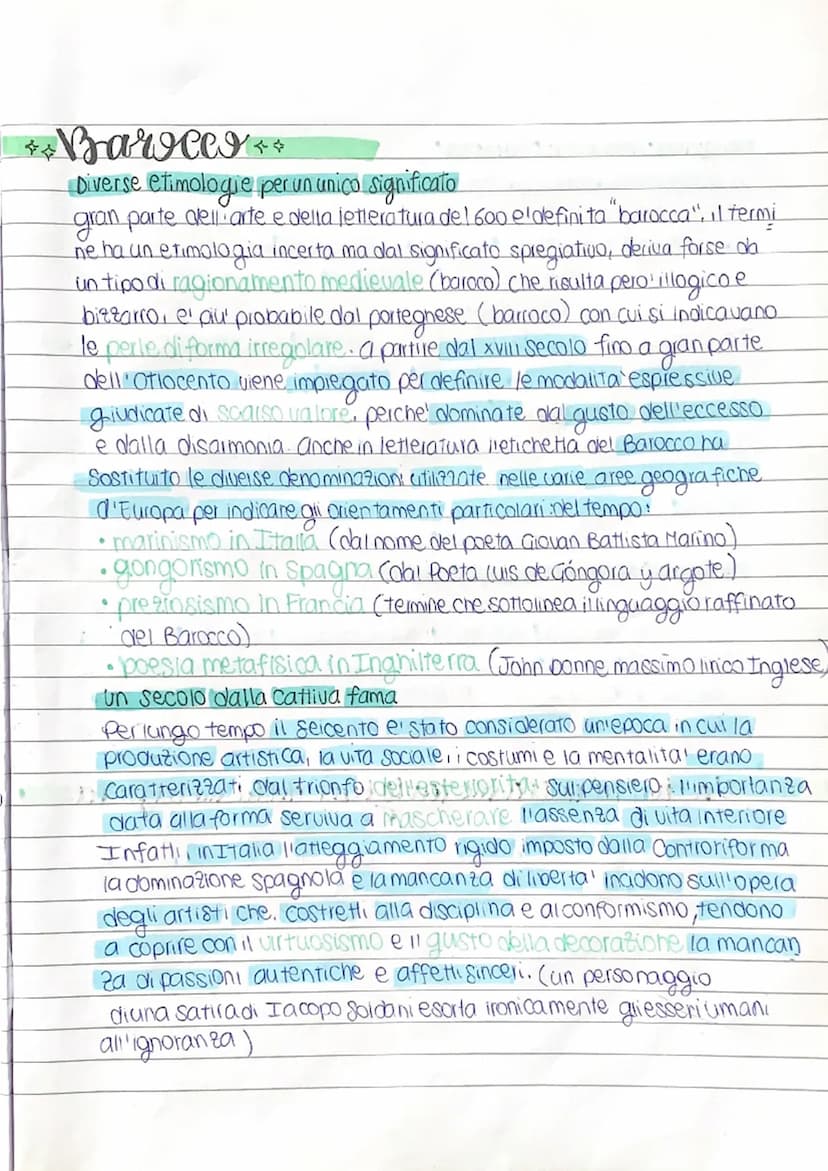 Barocco
Diverse etimologie per un unico significato
gran parte dell'arte e della letteratura del 600 e' definita "barocca", il termi
ne ha un etimologia incerta ma dal significato spregiativo, deriva forse da
un tipo di ragionamento medievale (baroco) che risulta pero' illogico e
bizzarro, e' piu' probabile dal porteghese (barroco) con cui si indicavano
le perle di forma irregolare. a partire dal XVIII secolo fino a gran parte
dell'Ottocento viene impiegato per definire le modalita' espressive
giudicate di scarso valore, perche' dominate dal gusto dell'eccesso
e dalla disarmonia. Anche in letteratura l'etichetta del Barocco ha
Sostituito le diverse denominazioni utilizzate nelle varie aree geografiche
d'Europa per indicare gli orientamenti particolari del tempo:
• marinismo in Italia (dal nome del poeta Giovan Battista Marino)
• gongorismo in Spagna (dal Poeta Luis de Góngora y argote)
• preziosismo in Francia (termine che sottolinea il linguaggio raffinato
del Barocco)
• poesia metafisica in Inghilterra (John Donne massimo lirico Inglese)
Un secolo dalla cattiva fama
Per lungo tempo il Seicento e' stato considerato un'epoca in cui la
produzione artistica, la vita sociale, i costumi e la mentalita' erano
caratterizzati dal trionfo dell'esteriorita' sul pensiero: l'importanza
data alla forma serviva a mascherare l'assenza di vita interiore
Infatti, in Italia l'atteggiamento rigido imposto dalla Controriforma
la dominazione spagnola e la mancanza di liberta' inadono sull'opera
degli artisti che, costretti alla disciplina e al conformismo, tendono
a coprire con il virtuosismo e il gusto della decorazione la mancan
za di passioni autentiche e affetti sinceri. (un personaggio
di una satira di Iacopo Soldani esorta ironicamente gli esseri umani
all'ignoranza)